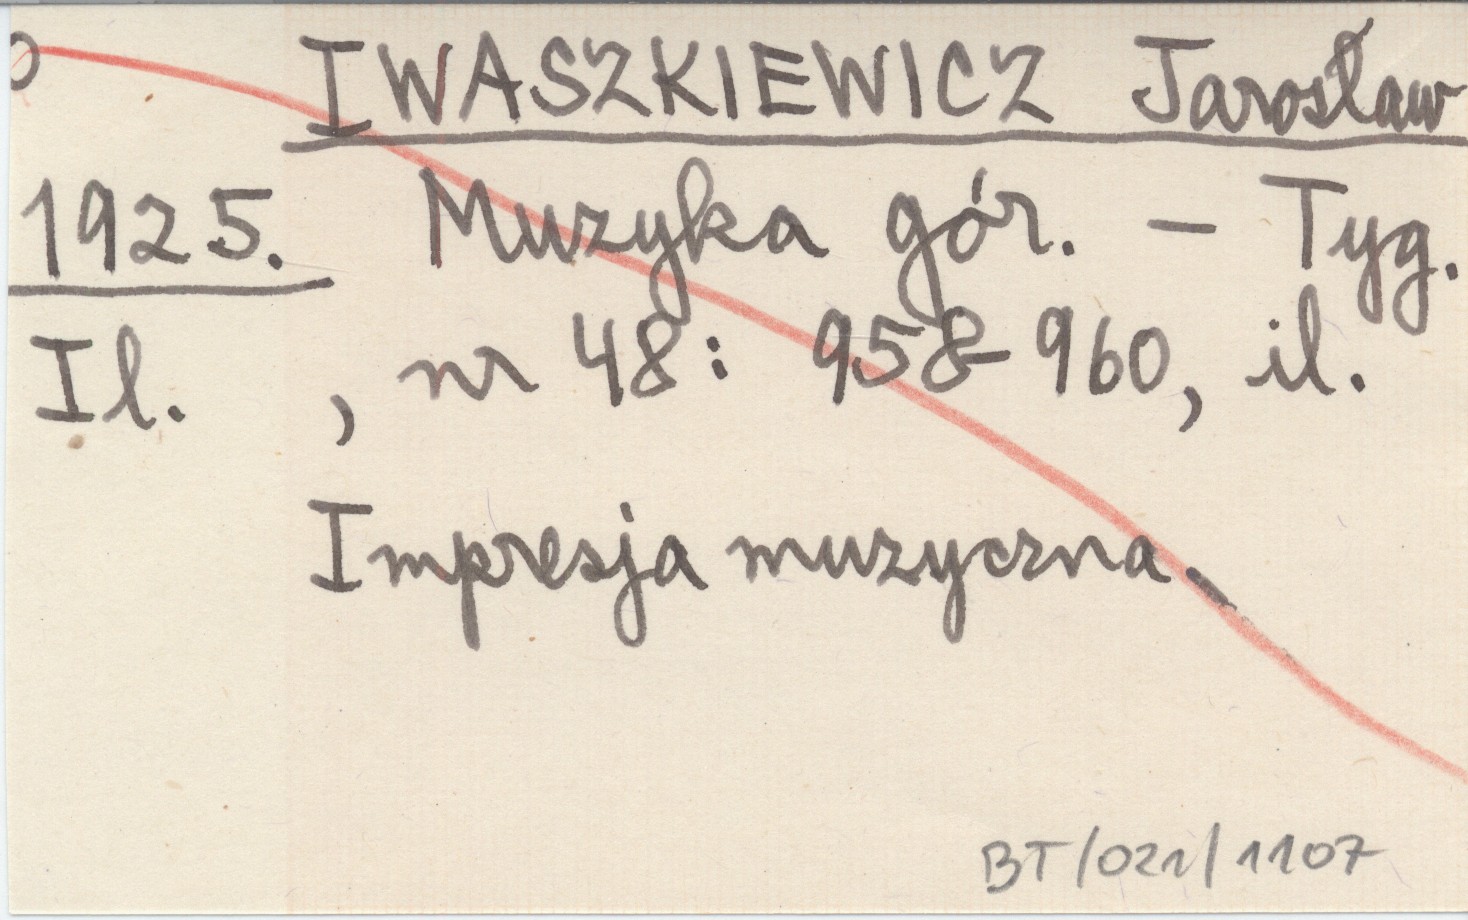 IWASZKIEWICZ Jarosław
1925. Muzyka gór. – Tyg.
Il. , nr 48: 958-960, il.
Impresja muzyczna.
BT/021/1107